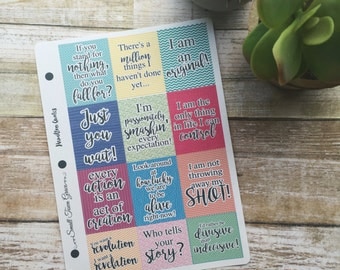 If you
stand for
nothing,
then what
do you
fall for?
There's a
million
things I
haven't done
yet...
I am
an
original!
Just
you
wait!
I'm
passionately
smashin'
every
expectation!
I am the
only thing
in life I can
control
every
action is
an act of
creation
Look around
at
how lucky
we are
to be
alive
right now!
I am not
throwing
away my
SHOT!
revelation
revelation
Who tells
your
story?
divisive
indecisive!
Hamilton Quotes